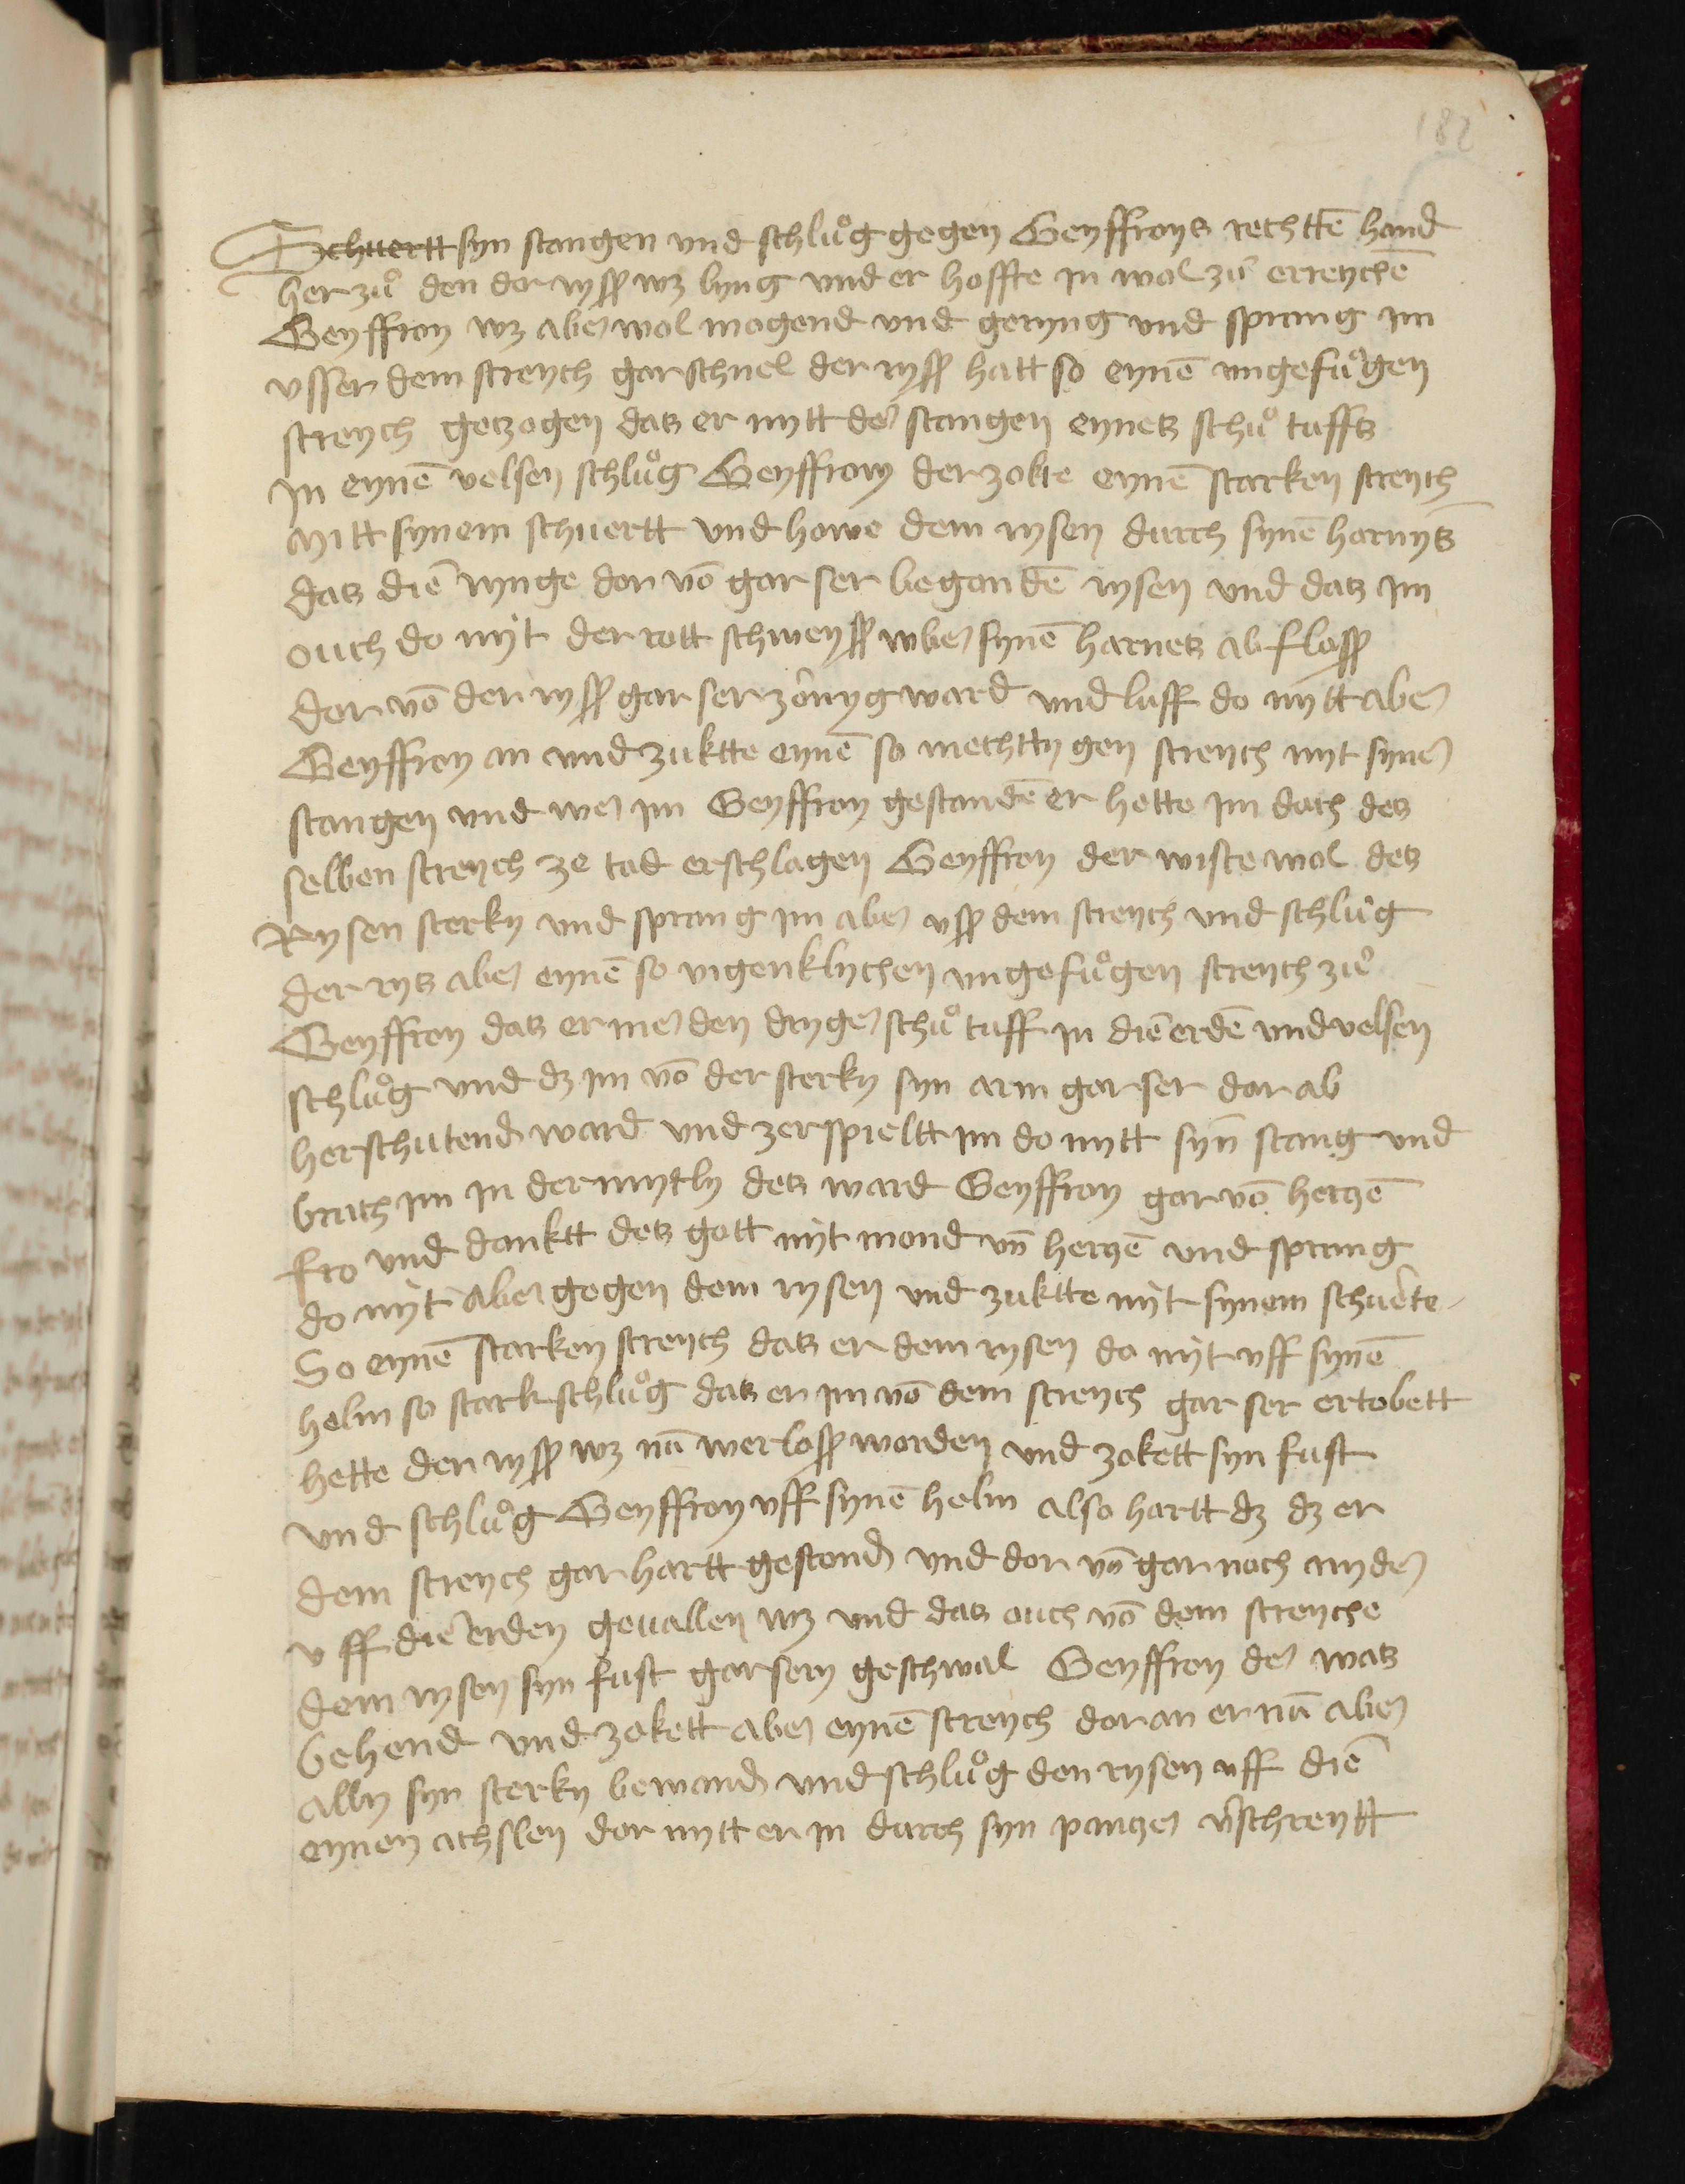 182
Schuertt syn stangen vnd schlůg gegen Geyffroys rechttē hand
her zů den der ryſſ wz lyng vnd er hoffte jn wol zů erreychē
Geyffroy wz aber wol mogend vnd geryng vnd sprang im
vsser dem streych gar schnel der ryſſ hatt so eynē vngefůgen
streych gezogen das er mytt der stangen eynes schů tuffs
Jn eynē velsen schlůg Geyffroy der zokte eynē starken streych
Mitt synem schuertt vnd howe dem rysen durch synē harnys
das die rynge dor vō gar ser begondē rysen vnd das im
ouch do myt der rott schweyſſ wber synē harnes ab floſſ
dor vō der ryſſ gar ser zornyg ward vnd luff do mytt aber
Geyffroy an vnd zuktte eynē so mechttygen streych myt syner
stangen vnd wer im Geyffroy gestandē er hette im doch des
selben streych ze tod erschlagen Geyffroy der wiste wol des
Rysen sterky vnd sprang im aber vſſ dem streych vnd schlůg
der rys aber eynē so vigenklychen vngefůgen streych zů
Geyffroy das er mer den dryger schů tuff jn die erdē vnd velsen
schlůg vnd dz im vō der sterky syn arm gar ser dor ab
herschutend ward vnd zerspieltt im do mytt syn stang vnd
brach im jn der mytly des ward Geyffroy gar vō herzē
fro vnd danktt des gott myt mond vn̄ herzē vnd sprang
do myt aber gegen dem rysen vnd zuktte myt synem schuerte
So eynē starken streych das er dem rysen do myt vff synē
helm so stark schlůg das er im vō dem streych gar ser ertobett
hette der ryſſ wz nū werloſſ worden vnd zokett syn fust
vnd schlůg Geyffroy vff synē helm also hartt dz dz er
dem streych gar hartt gestond vnd dor vō gar noch nyder
vff die erden geuallen wz vnd das ouch vō dem streyche
dem rysen syn fust gar sery geschwal Geyffroy der was
behend vnd zokett aber eynē streych dor an er nū aber
ally syn sterky bewand vnd schlůg den rysen vff die
eynen achslen dor mytt er jn durch syn panzer v̄schreytt